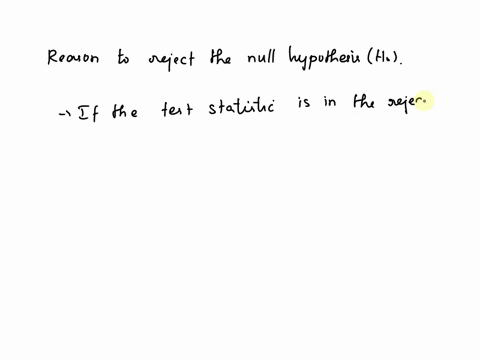 Reason to reject the null hypothesis (H₀).
→ If the test statistic is in the rejec